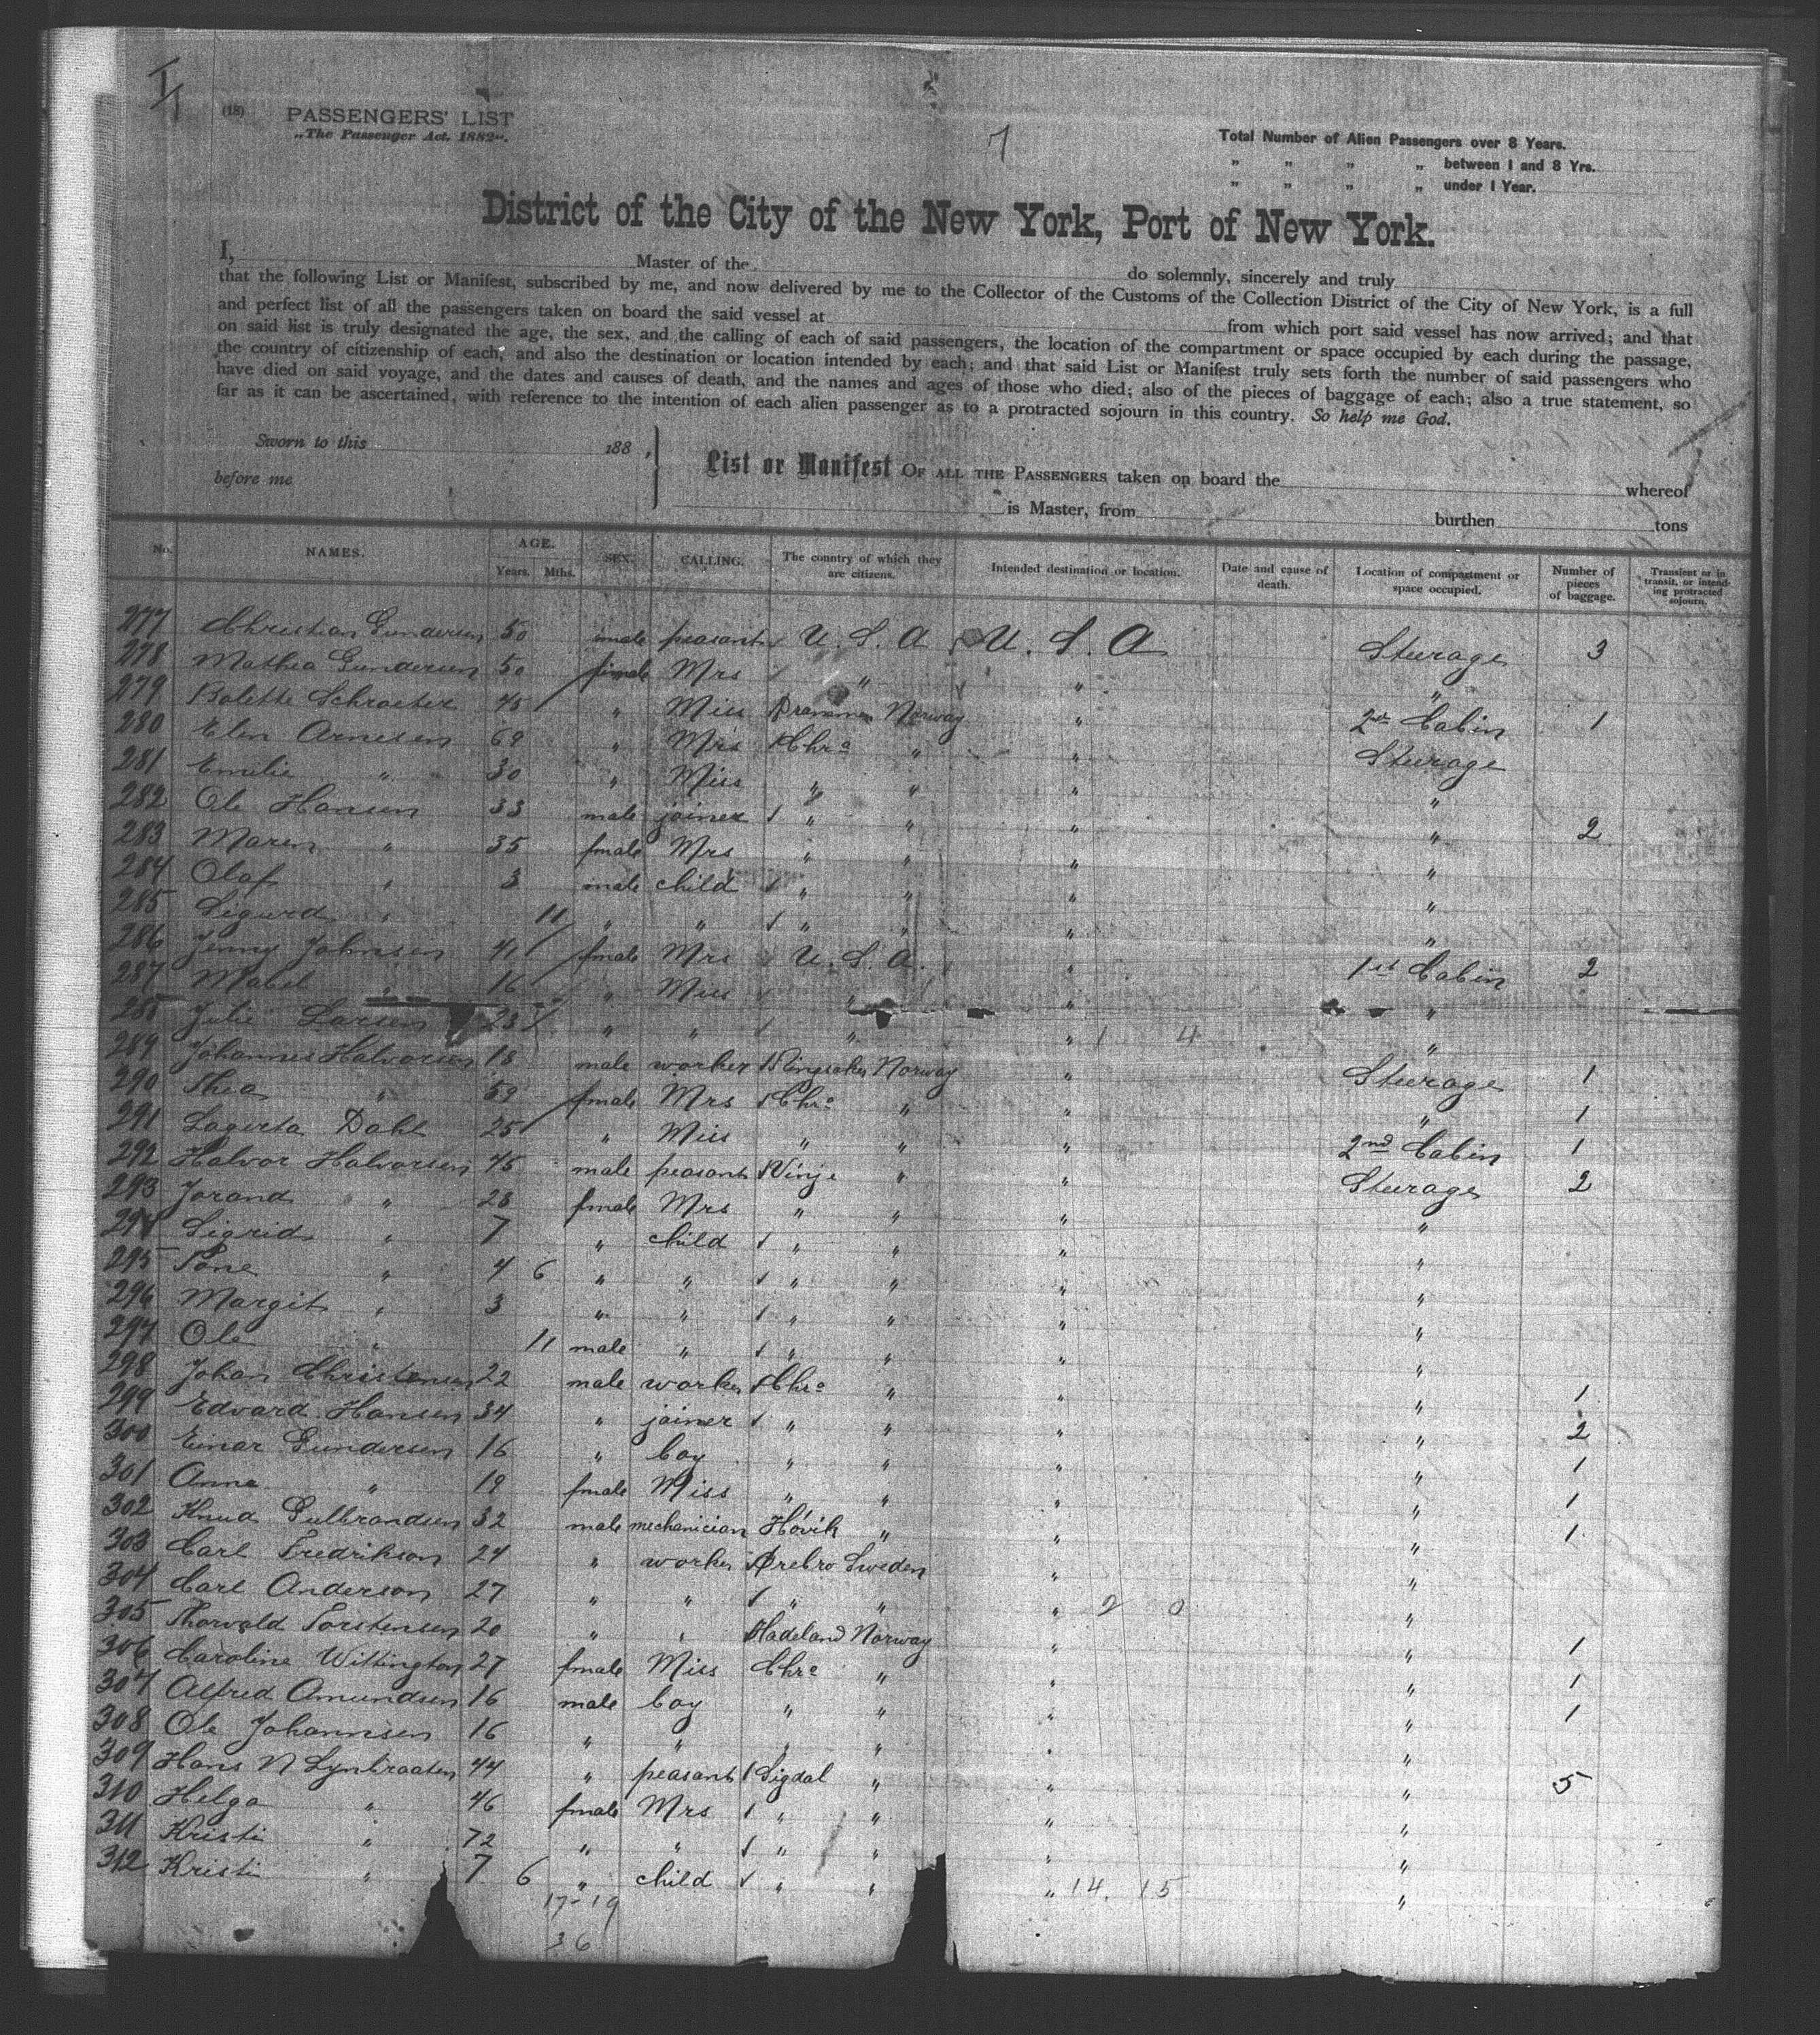 I/1
(18) PASSENGERS' LIST
„The Passenger Act. 1882“.
7
Total Number of Alien Passengers over 8 Years.
„ „ „ „ between 1 and 8 Yrs.
„ „ „ „ under 1 Year.
District of the City of the New York, Port of New York.
I, Master of the do solemnly, sincerely and truly
that the following List or Manifest, subscribed by me, and now delivered by me to the Collector of the Customs of the Collection District of the City of New York, is a full
and perfect list of all the passengers taken on board the said vessel at from which port said vessel has now arrived; and that
on said list is truly designated the age, the sex, and the calling of each of said passengers, the location of the compartment or space occupied by each during the passage,
the country of citizenship of each, and also the destination or location intended by each; and that said List or Manifest truly sets forth the number of said passengers who
have died on said voyage, and the dates and causes of death, and the names and ages of those who died; also of the pieces of baggage of each; also a true statement, so
far as it can be ascertained, with reference to the intention of each alien passenger as to a protracted sojourn in this country. So help me God.
Sworn to this 188 ,
before me
List or Manifest OF ALL THE PASSENGERS taken on board the whereof
is Master, from burthen tons
No. NAMES. AGE. Years. Mths. SEX. CALLING. The country of which they are citizens. Intended destination or location. Date and cause of death. Location of compartment or space occupied. Number of pieces of baggage. Transient or in transit, or intending protracted sojourn.
277 Christian Gundersen 50 male peasant U. S. A U. S. A Sturage 3
278 Mathea Gundersen 50 female Mrs " " "
279 Bolette Schroeter 45 " Miss Drammen Norway " 2nd Cabin 1
280 Elen Arnesen 69 " Mrs Chra " " Sturage
281 Emilie " 30 " Miss " " " "
282 Ole Hansen 33 male joiner " " " " 2
283 Maren " 35 female Mrs " " " "
284 Olaf " 3 male child " " " "
285 Sigurd " 11 " " " " " "
286 Jenny Johnsen 41 female Mrs U. S. A. " 1st Cabin 2
287 Mabel " 16 " Miss " " "
288 Julie Larsen 23 " " " " 1 4 "
289 Johannes Halvorsen 18 male worker Ringsaker Norway " Sturage 1
290 Thea " 59 female Mrs Chra " " " 1
291 Lagerta Dahl 25 " Miss " " " 2nd Cabin 1
292 Halvor Halvorsen 45 male peasant Vinje " " Sturage 2
293 Jorand " 28 female Mrs " " " "
294 Sigrid " 7 " child " " " "
295 Tone " 4 6 " " " " " "
296 Margit " 3 " " " " " "
297 Ole " 11 male " " " " "
298 Johan Christensen 22 male worker Chra " " " 1
299 Edvard Hansen 34 " joiner " " " " 2
300 Einar Gundersen 16 " boy " " " " 1
301 Anna " 19 female Miss " " " " 1
302 Knud Gulbrandsen 32 male mechanician Hövik " " " 1
303 Carl Fredrikson 24 " worker Örebro Sweden " "
304 Carl Anderson 27 " " " " " 2 0 "
305 Thorvald Torstensen 20 " " Hadeland Norway " " 1
306 Caroline Wittington 27 female Miss Chra " " " 1
307 Alfred Amundsen 16 male boy " " " " 1
308 Ole Johannsen 16 " " " " " "
309 Hans N Lynbraaten 44 " peasant Sigdal " " " 5
310 Helga " 46 female Mrs " " " "
311 Kristi " 72 " " " " " "
312 Kristi " 7 6 " child " " " 14. 15 "
17-19
36